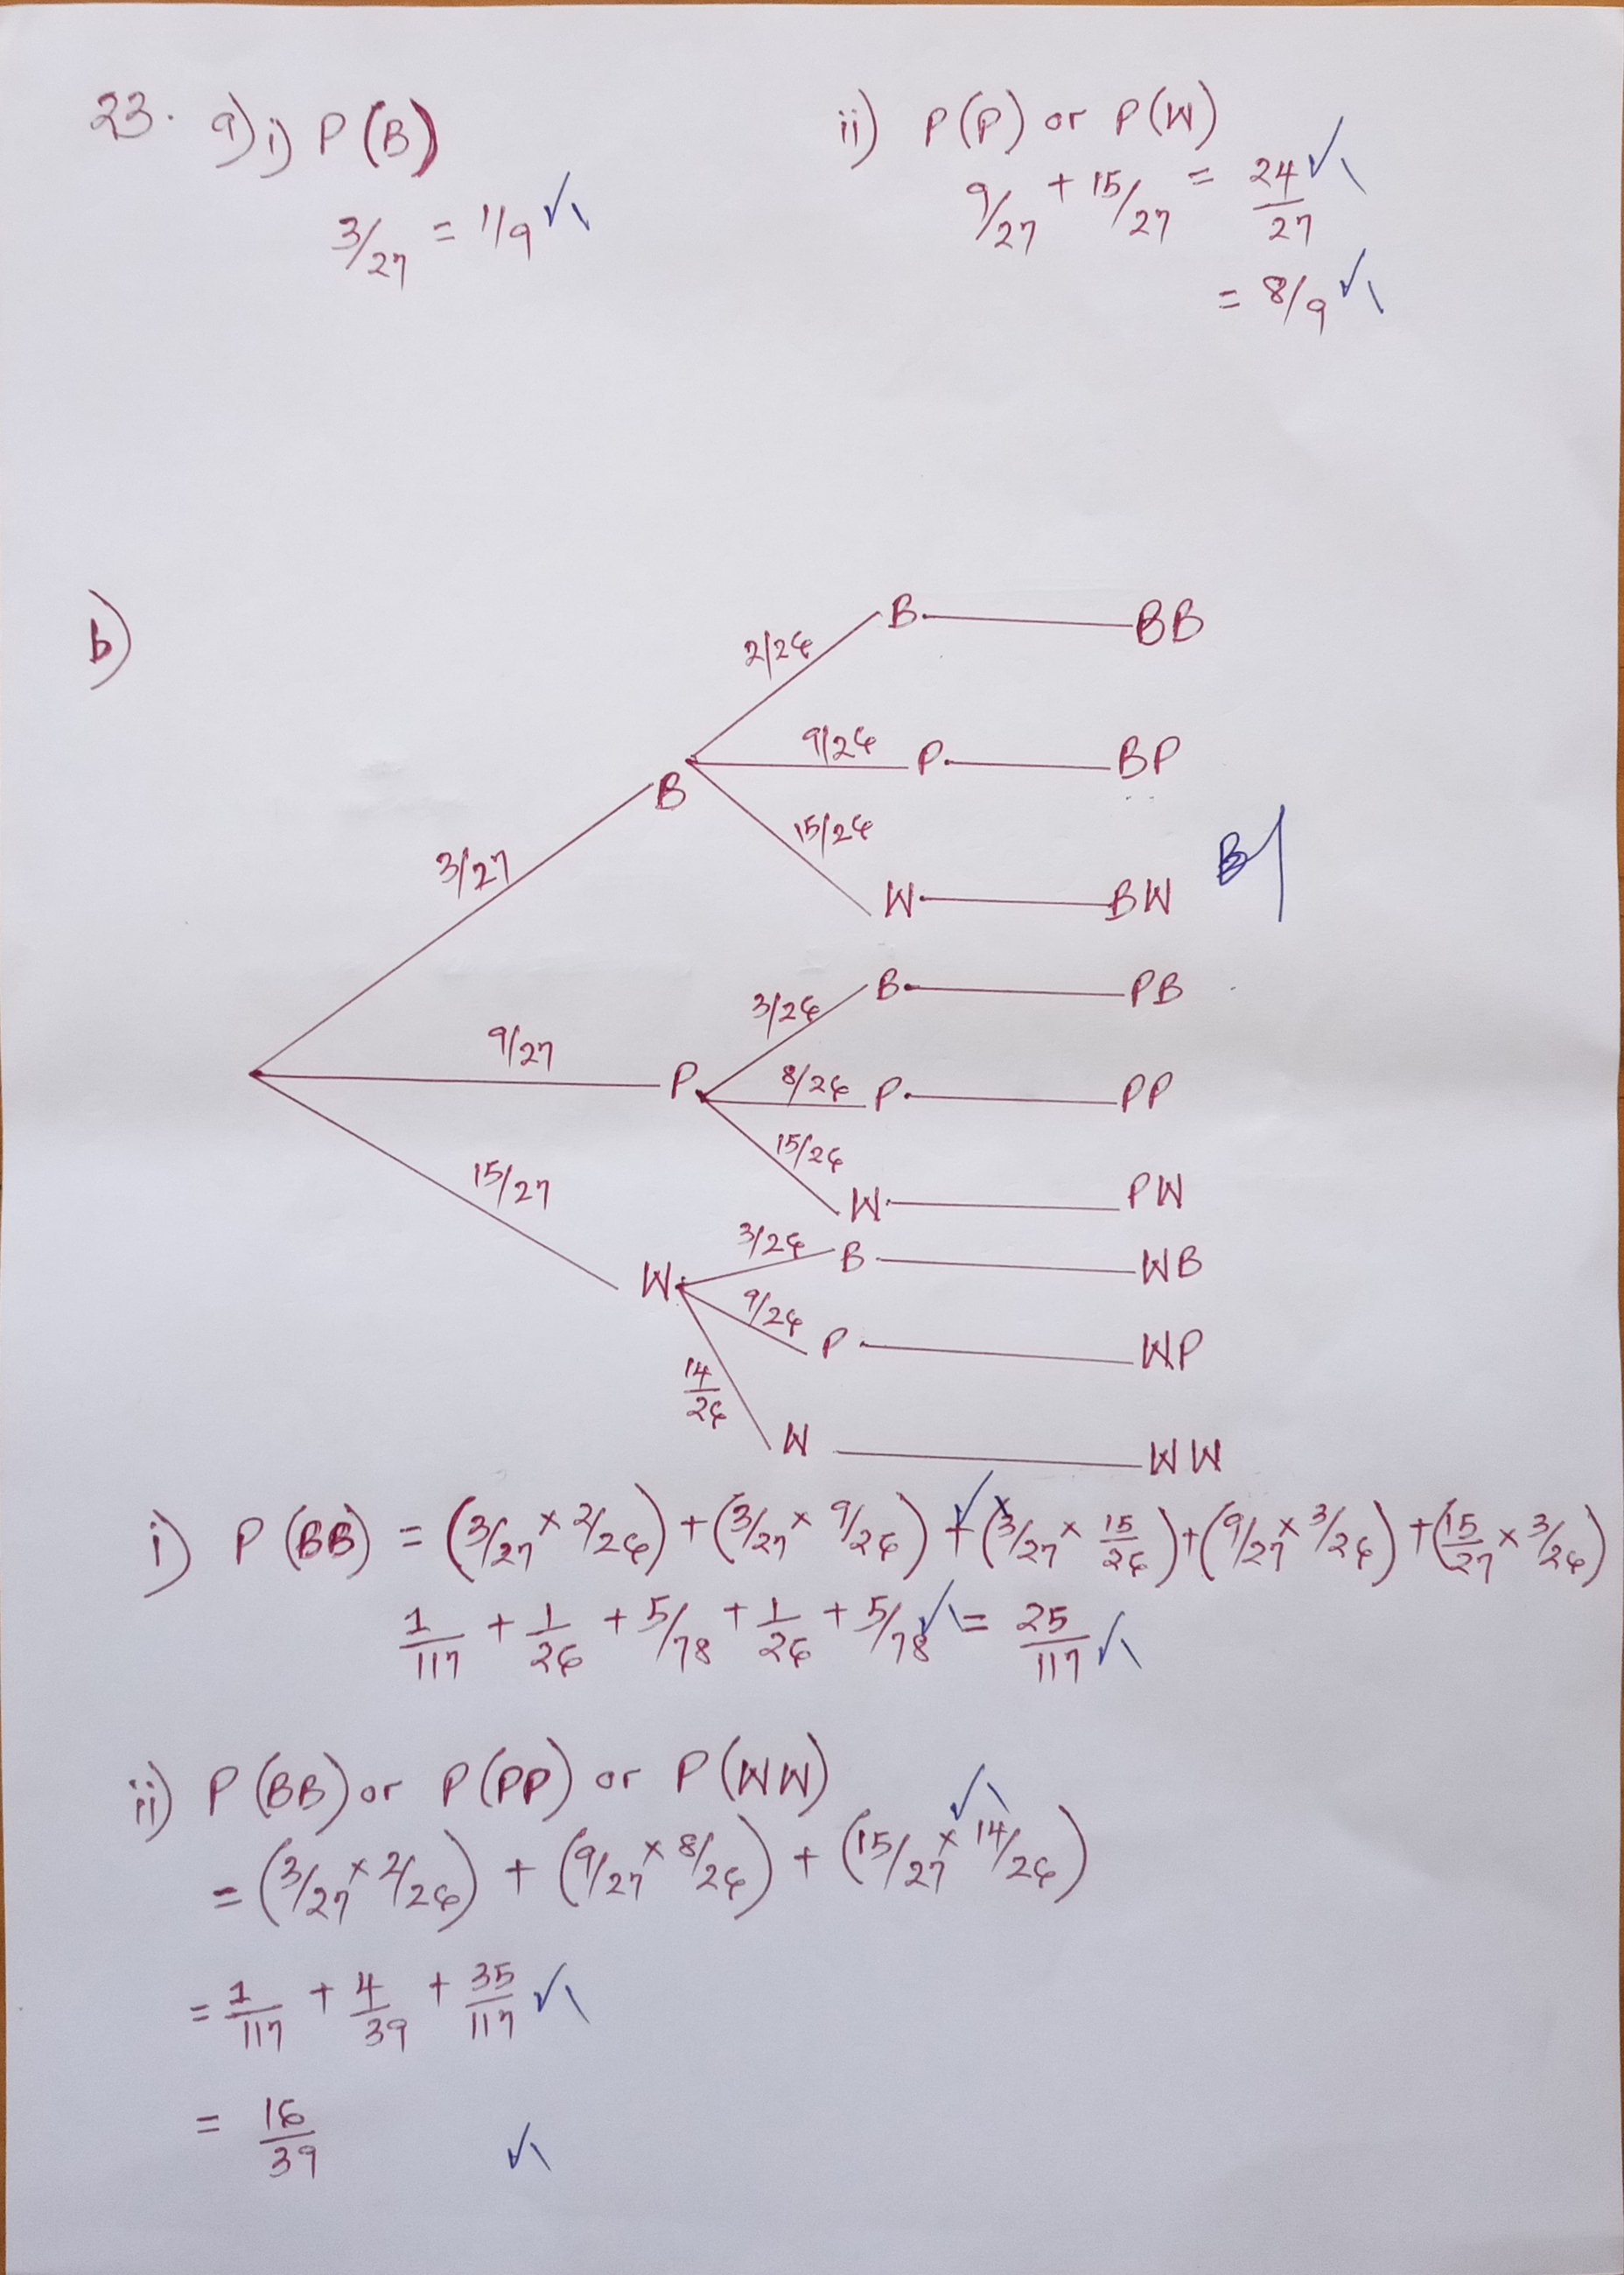 23. a) i) P(B)
3/27 = 1/9
ii) P(P) or P(W)
9/27 + 15/27 = 24/27
= 8/9
b)
2/26 B BB
9/26 P BP
B
15/26
3/27
W BW B1
B PB
3/26
9/27 P 8/26 P PP
15/26
15/27
W PW
3/26 B WB
W
9/26
P WP
14/26
W WW
i) P(BB) = (3/27 × 2/26) + (3/27 × 9/26) + (3/27 × 15/26) + (9/27 × 3/26) + (15/27 × 3/26)
1/117 + 1/26 + 5/78 + 1/26 + 5/78 = 25/117
ii) P(BB) or P(PP) or P(WW)
= (3/27 × 2/26) + (9/27 × 8/26) + (15/27 × 14/26)
= 1/117 + 4/39 + 35/117
= 16/39